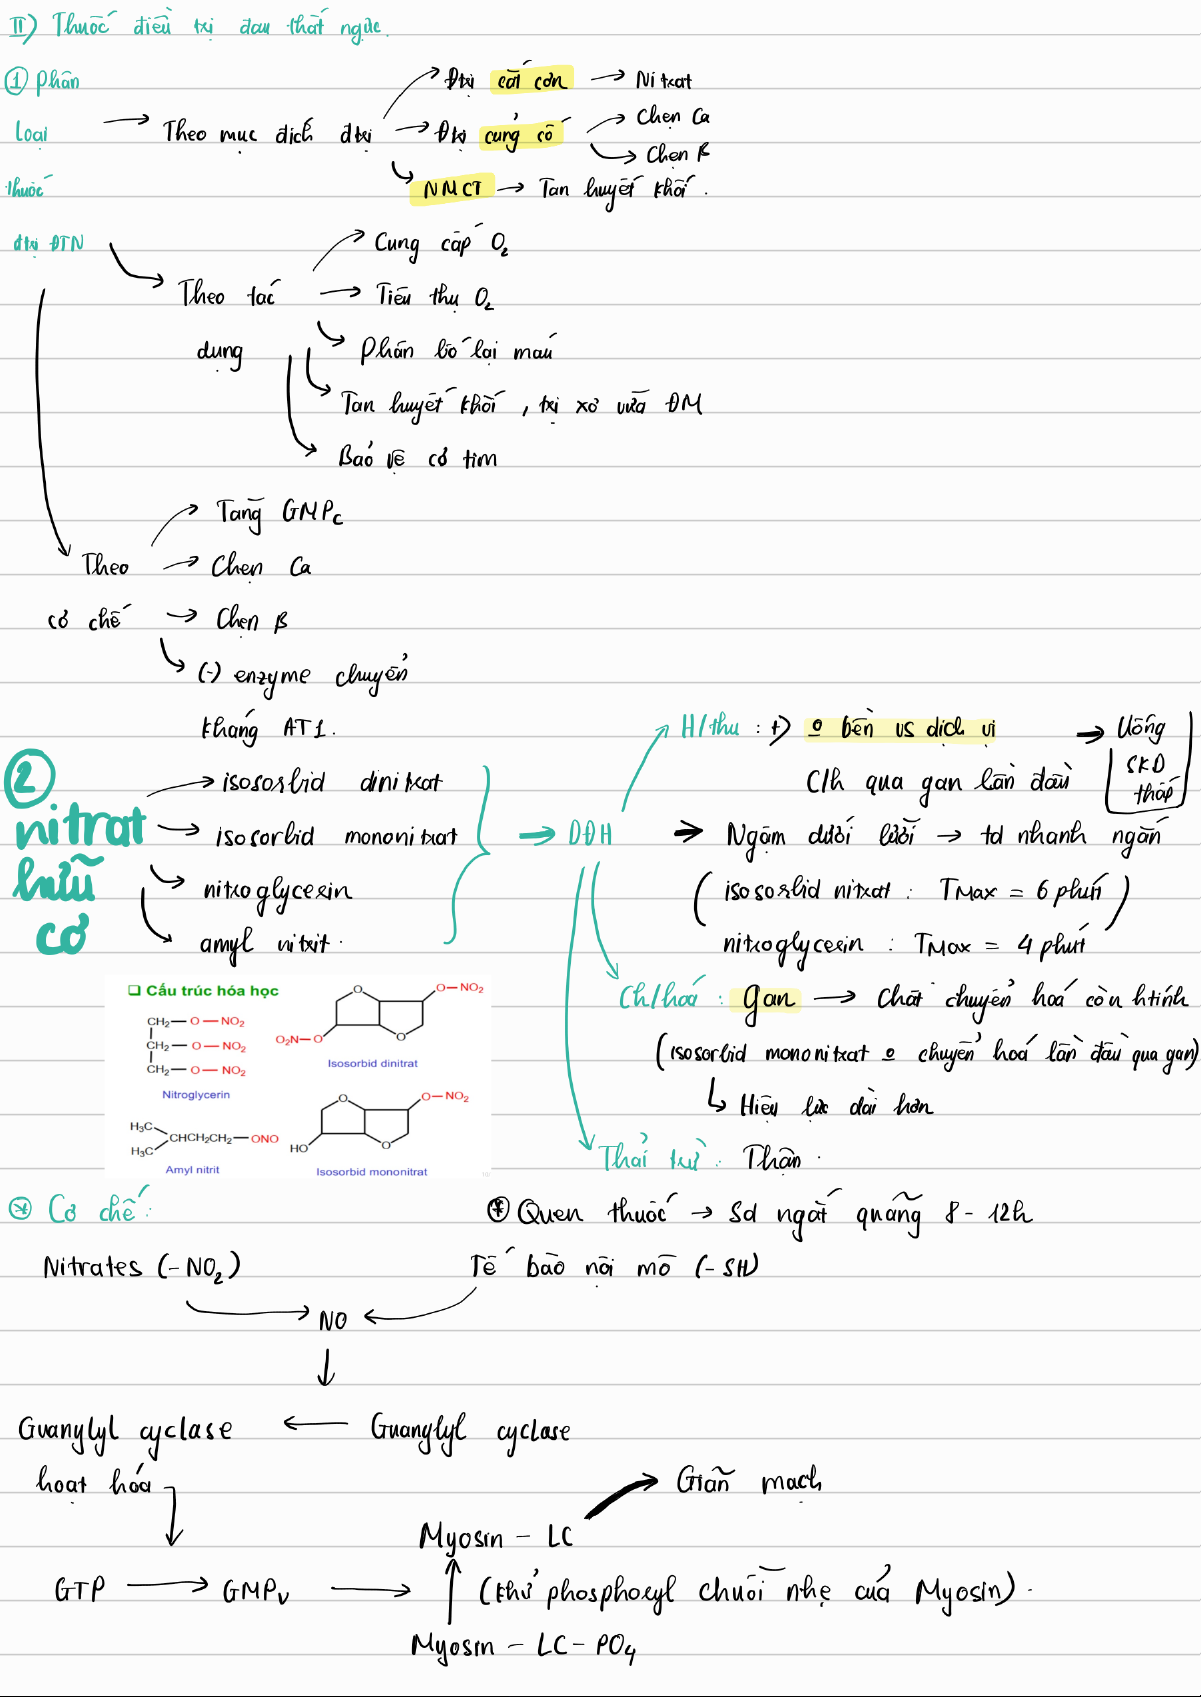 II) Thuốc điều trị đau thắt ngực.
① Phân loại thuốc đtrị ĐTN
→ Theo mục đích đtrị
→ Đtrị cắt cơn → Nitrat
→ Đtrị củng cố → Chẹn Ca
→ Chẹn β
→ NMCT → Tan huyết khối.
Theo tác dụng
→ Cung cấp O₂
→ Tiêu thụ O₂
→ Phân bố lại máu
→ Tan huyết khối, trị xơ vữa ĐM
→ Bảo vệ cơ tim
Theo cơ chế
→ Tăng GMPc
→ Chẹn Ca
→ Chẹn β
→ (-) enzyme chuyển
kháng AT1.
② nitrat hữu cơ
→ isososbid dinitrat
→ isosorbid mononitrat
→ nitroglycerin
→ amyl nitrit.
→ DĐH
H/thu : +) o bền vs dịch vị → Uống
SKD thấp
C/h qua gan lần đầu
→ Ngậm dưới lưỡi → td nhanh ngắn
(isososbid nitrat : TMax = 6 phút)
nitroglycerin : TMax = 4 phút
Ch/hoá : gan → chất chuyển hoá còn htính
(isosorbid mononitrat o chuyển hoá lần đầu qua gan)
↳ Hiệu lực dài hơn
Thải trừ : Thận.
❑ Cấu trúc hóa học
CH₂— O —NO₂
CH₂— O —NO₂
CH₂— O —NO₂
Nitroglycerin
O—NO₂
O
O
O₂N—O
Isosorbid dinitrat
H₃C
H₃C
CHCH₂CH₂—ONO
Amyl nitrit
O—NO₂
O
O
HO
Isosorbid mononitrat
⊛ Cơ chế :
Nitrates (-NO₂)
⊛ Quen thuốc → Sd ngắt quãng 8 - 12h
Tế bào nội mô (-SH)
→ NO ←
↓
Guanylyl cyclase ← Guanylyl cyclase
hoạt hóa
Giãn mạch
Myosin - LC
GTP → GMPv → ↑ (khử phosphoryl chuỗi nhẹ của Myosin).
Myosin - LC - PO₄